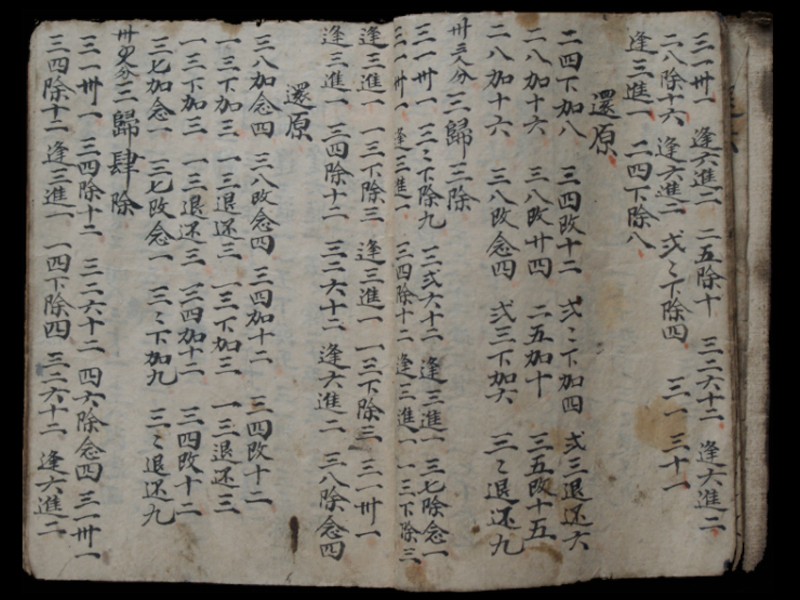 三一卅一 逢六進二 二五除十 三二六十二 逢六進二
二八除十六 逢六進二 弍〻下除四 三一三十一
逢三進一 二四下除八
還原
二四下加八 三四改十二 弍〻下加四 弍三退还六
二八加十六 三八改廿四 二五加十 三五改十五
二八加十六 三八改念四 弍三下加六 三〻退还九
卅三人分 三歸三除
三一卅一 三〻下除九 三弍六十二 逢三進一 三七除念一
三一卅一 逢三進一 三四除十二 逢三進一 一三下除三
逢三進一 一三下除三 逢三進一 一三下除三 三一卅一
逢三進一 三四除十二 三二六十二 逢六進二 三八除念四
還原
三八加念四 三八改念四 三四加十二 三四改十二
一三下加三 一三退还三 一三下加三 一三退还三
一三下加三 一三退还三 三四加十二 三四改十二
三七加念一 三七改念一 三〻下加九 三〻退还九
卅 人分 三歸肆除
三一卅一 三四除十二 三二六十二 四六除念四 三一卅一
三四除十二 逢三進一 一四下除四 三二六十二 逢六進二